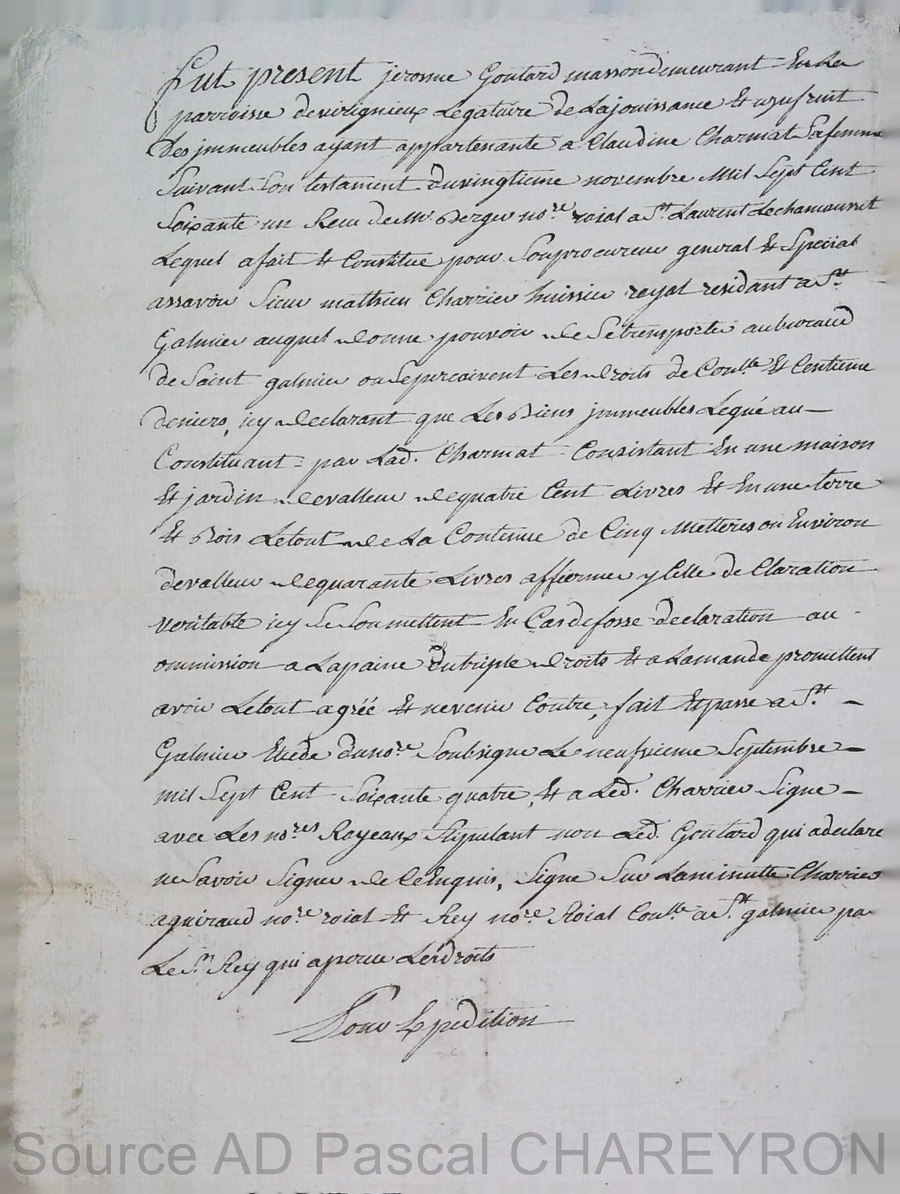 Fut present jerosme Goutard masson demeurant En La
parroisse de virignieux Legataire de La jouissance Et uzufruit
des jmmeubles ayant appartenante a Claudine Charmat Sa femme
Suivant Son testament du vingtieme novembre Mil Sept Cent
Soixante un Recu de Me Berger nore roial a St Laurent de chamousset
Lequel a fait Et Constitué pour Son procureur general Et Special
assavoir Sieur mathieu Charrier huissier royal residant a St
Galmier auquel donne pouvoir de Se transporter au bureau
de Saint galmier ou Se percoivent Les droits de Conlle Et Centieme
deniers, y declarant que Les Biens jmmeubles Legué au
Constituant par Lad. Charmat Consistant En une maison
Et jardin de valleur de quatre Cent Livres Et En une terre
Et Bois Le tout de La Contenue de Cinq Metterés ou Environ
de valleur de quarante Livres affermer y Celle de Claration
veritable y Se Soumettent En Cas de fosse declaration ou
ommission a La paine du triple droits Et a Lamande promettent
avoir Le tout agréé Et ne venir Contre, fait Et passé a St
Galmier Etude du nore Soubsigne Le neufvieme Septembre
mil Sept Cent Soixante quatre, Et a Led. Charrier Signe
avec Les nores Royeaux Stipulant non Led. Goutard qui a declaré
ne Savoir Signer de ce Enquis, Signe Sur La minutte Charrier
aguiraud nore roial Et Rey nore Roial Conlle a St galmier par
Le Sr Rey qui a percu Les droits
Pour Expedition
Source AD Pascal CHAREYRON